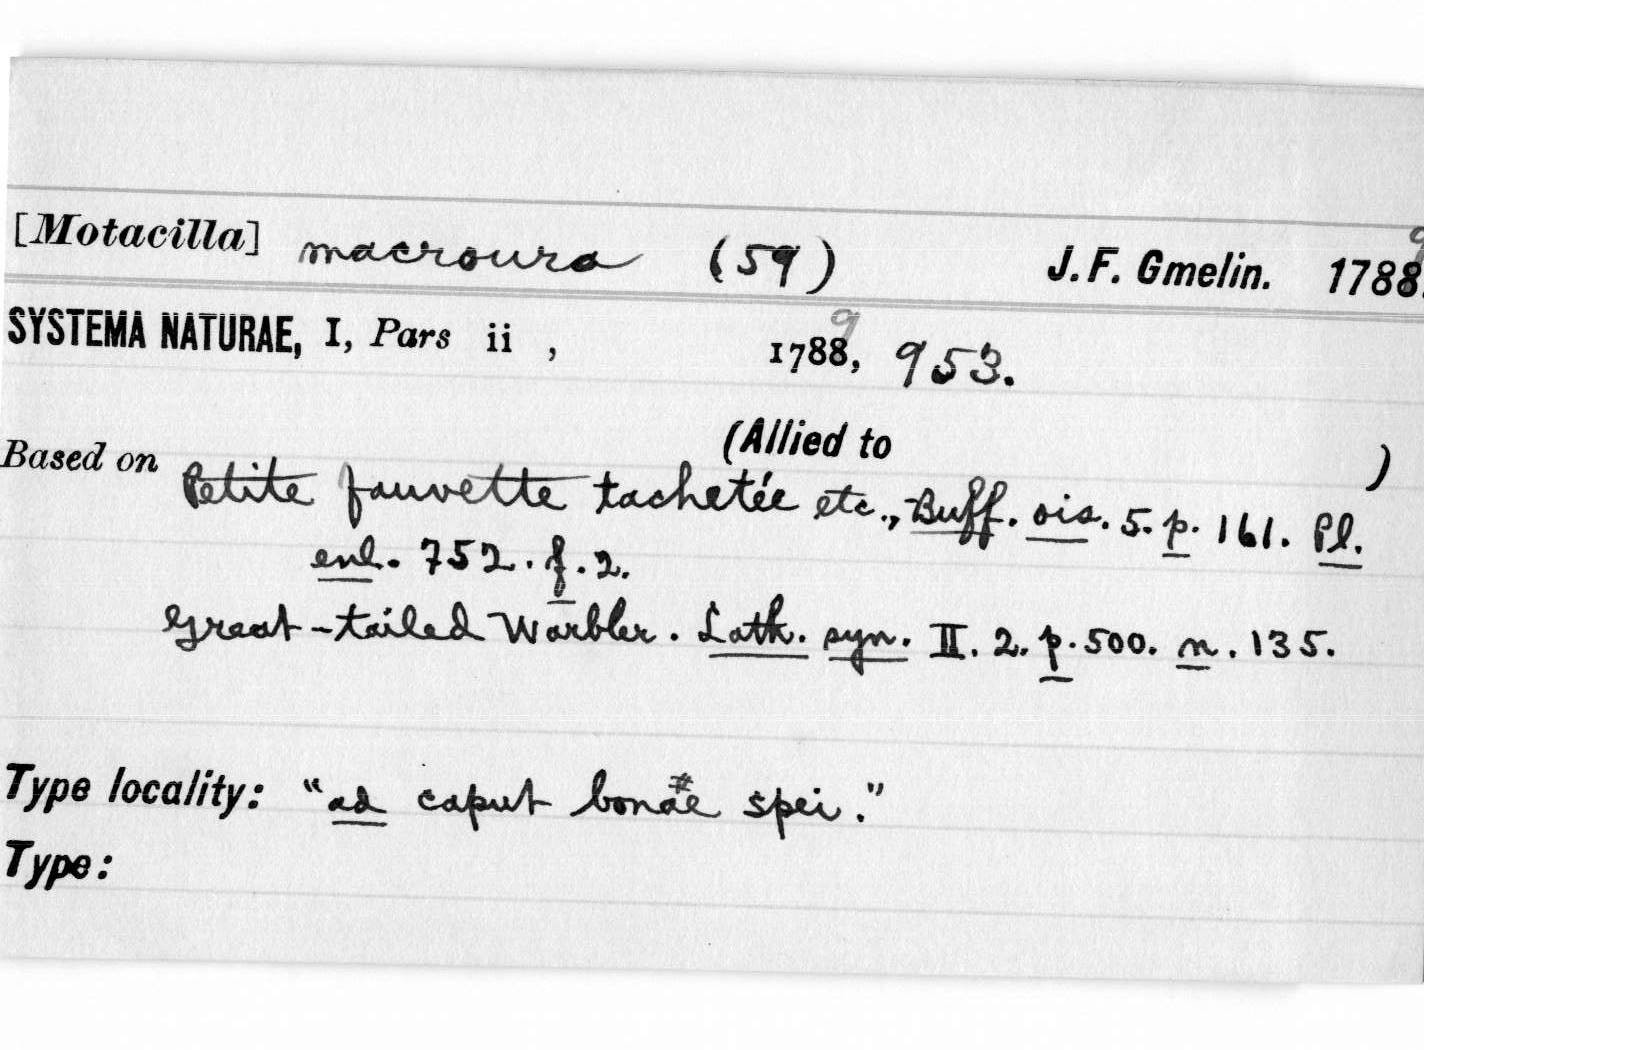 [Motacilla] macroura (59) J. F. Gmelin. 1788.9
SYSTEMA NATURAE, I, Pars ii , 1788,9 953.
(Allied to )
Based on Petite fauvette tachetée etc., Buff. ois. 5. p. 161. Pl.
enl. 752. f. 2.
Great-tailed Warbler. Lath. syn. II. 2. p. 500. n. 135.
Type locality: "ad caput bonae# spei."
Type: